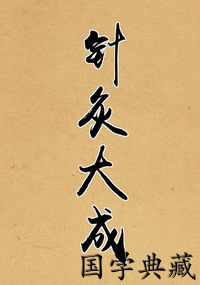 针灸大成
国学典藏